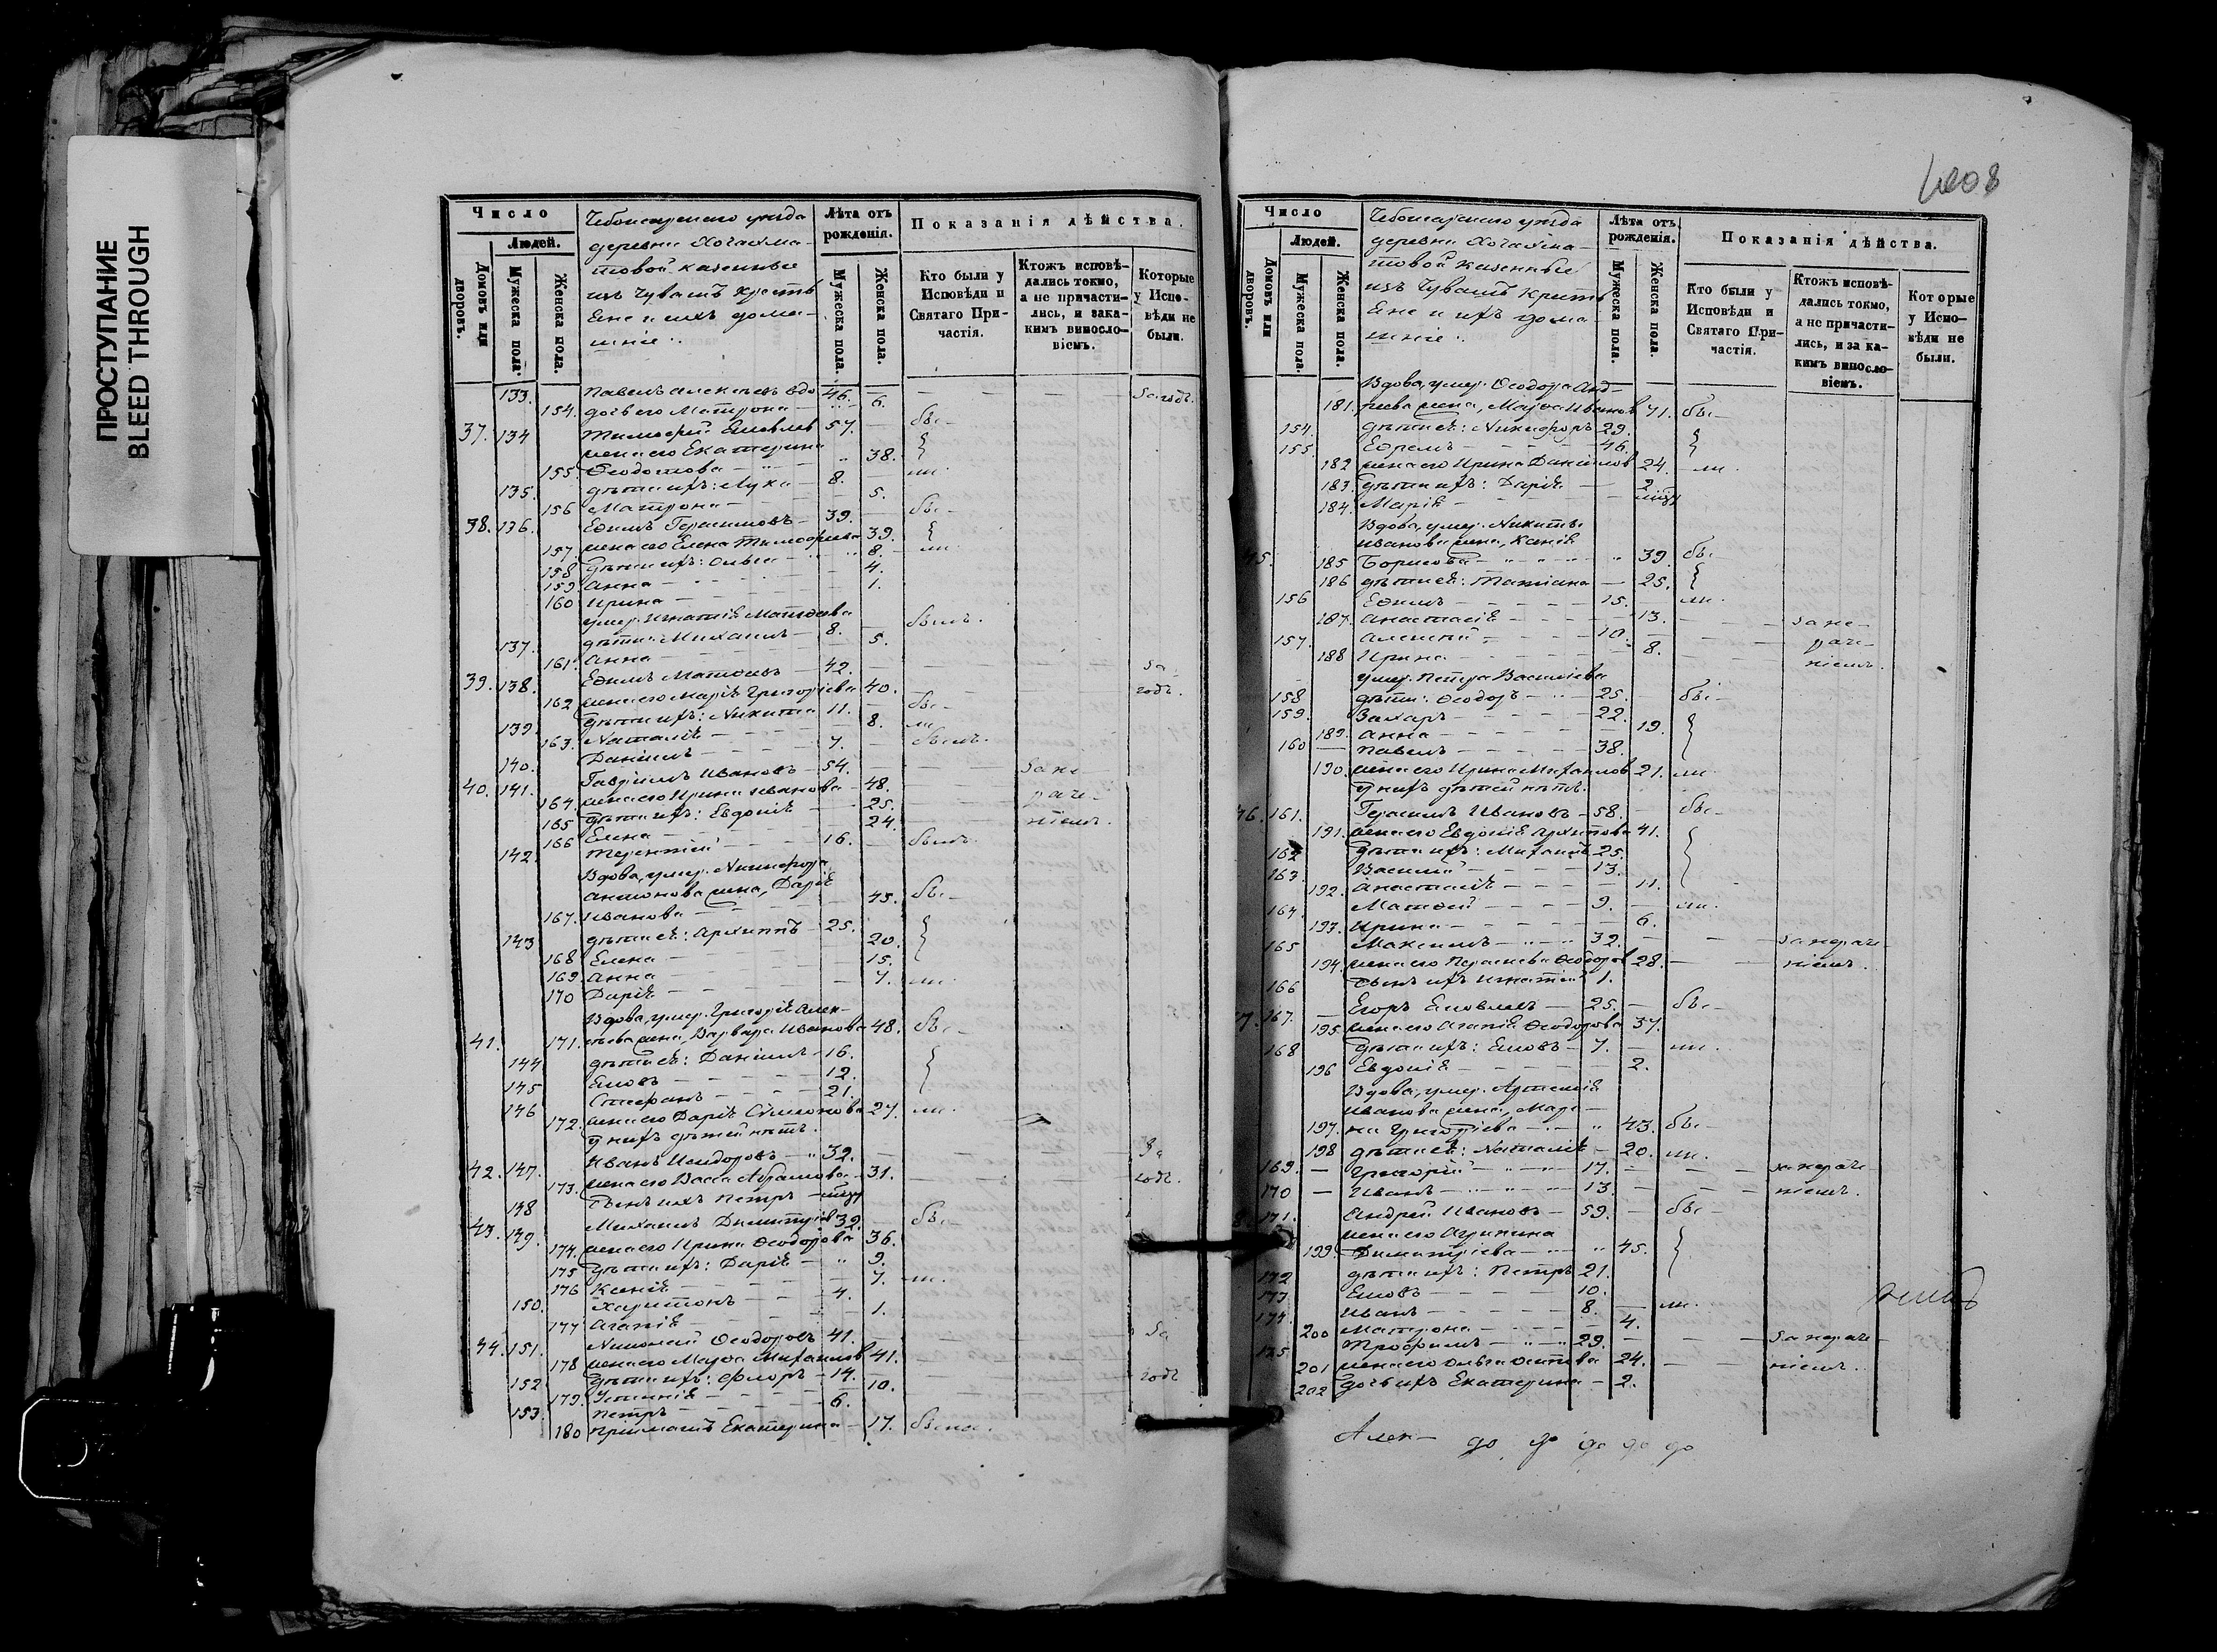 ПРОСТУПАНИЕ
BLEED THROUGH
Число
Людей.
Домовъ или дворовъ.
Мужеска пола.
Женска пола.
Чебоксарскаго уѣзда
деревни
товой казенные
изъ Чувашъ крестья
Ене и ихъ дома-
шніе:
Лѣта отъ рожденія.
Мужеска пола.
Женска пола.
Показанія дѣйства.
Кто были у Исповѣди и Святаго Причастія.
Ктожъ исповѣ-
дались токмо,
а не причасти-
лись, и зака-
кимъ винosло-
віемъ.
Которые
у Испо-
вѣди не
были.
133. Павелъ Алексѣевъ вдо 46. — — — за годъ.
154. дочь его Матрона — 6.
37. 134 Тимофей Яковлев 57. — бы-
жена его Екатерина
155. Ѳеодотова — 38. }
135. дѣти ихъ: Лука — 8. ли.
156 Матрона — 5.
38. 136. Ефимъ Герасимовъ — 39. — бы-
157. жена его Елена Тимофеева 39. {
158 дѣти ихъ: Ольга — 8. — ли.
159. Анна — 4.
160 Ирина — 1.
умер. Игнатія Матѳеева
137. дѣти: Михаилъ — 8. былъ.
161. Анна — 5.
39. 138. Ефимъ Матѳеевъ — 42. — — — за
162 жена его Марія Григорьева 40. — — годъ.
139. дѣти ихъ: Никита 11. — бы-
163. Наталія — 8. ли
140. Даніилъ — 7. — былъ.
40. 141. Гавріилъ Ивановъ — 54. — — за не
164. жена его Ирина Иванова — 48. — раче-
165 дѣти ихъ: Евдокія — 25. — ніемъ.
166 Елена — 24.
142. Терентій — 16. — былъ.
Вдова, умер. Никифора
Антонова жена, Дарія
167. Иванова — 45. бы-
143 дѣти её: Архиппъ — 25. {
168 Елена — 20.
169. Анна — 15.
170 Дарія — 7. ли.
Вдова, умер. Григорія Алек-
41. 171. сѣева жена, Варвара Иванова 48. бы-
144 дѣти её: Даніилъ — 16. {
145 Яковъ — 12.
146 Стефанъ — 21.
172. жена его Дарія Симонова 27. ли.
У нихъ дѣтей нѣтъ.
42. 147. Иванъ Исидоровъ — 32. — — За
173. жена его Васса Абрамова — 31. — годъ.
148 сынъ ихъ Петръ —
43. 149. Михаилъ Димитріев 39. — бы-
174. жена его Ирина Ѳеодорова 36.
175 дѣти ихъ: Дарія — 9.
176 Ксенія — 7. — ли.
150. Харитонъ — 4.
177 Агапія — 1.
44. 151. Николай Ѳеодоровъ 41. — — За
178 жена его Марѳа Михаилов 41. —
152 дѣти ихъ: Флоръ — 14. — годъ
179. Устинія — 10.
153. Петръ — 6.
180 пріимышъ Екатерина — 17. была.
Число
Людей.
Домовъ или дворовъ.
Мужеска пола.
Женска пола.
Чебоксарскаго уѣзда
деревни
товой казенные
изъ Чувашъ крестья
Ене и ихъ дома-
шніе:
Лѣта отъ рожденія.
Мужеска пола.
Женска пола.
Показанія дѣйства.
Кто были у Исповѣди и Святаго Причастія.
Ктожъ исповѣ-
дались токмо,
а не причасти-
лись, и за ка-
кимъ винosло-
віемъ.
Которые
у Испо-
вѣди не
были.
Вдова, умер. Ѳеодора Анд-
181. реева жена, Марѳа Иванов 71. бы-
154. дѣти её: Никифоръ — 29.
155. Ефремъ — 46. }
182 жена его Ирина Даніилов 24. — ли.
183. дѣти ихъ: Дарія — 2
184. Марія —
Вдова, умер. Никиты
Иванова жена, Ксенія
45. 185 Борисова — 39. бы-
186 дѣти её: Татіана — 25. {
156 Ефимъ — 15. — ли.
187. Анастасія — 13. — — за не-
157. Алексѣй — 10. — раче-
188 Ирина — 8. — ніемъ.
умер. Петра Васильева
158 дѣти: Ѳеодоръ — 25. — бы-
159. Захаръ — 22.
189. Анна — 19. {
160 — Павелъ — 38.
190. жена его Ирина Михаилов 21. ли.
У нихъ дѣтей нѣтъ.
46. 161. Герасимъ Ивановъ — 58. — бы-
191. жена его Евдокія Архипова 41.
162 дѣти ихъ: Михаилъ 25. {
163. Василій — 13.
192. Анастасія — 11.
164. Матѳей — 9. — ли.
193. Ирина — 6.
165 Максимъ — 32. — — за нераче-
194. жена его Парасковья Ѳеодоров 28. — ніемъ.
166 сынъ ихъ Игнатій 1.
47. 167. Егоръ Яковлевъ — 25. — бы-
195. жена его Агапія Ѳеодорова 37.
168 дѣти ихъ: Яковъ — 7. — ли.
196 Евдокія — 2.
Вдова, умер. Артемія
Иванова жена, Мари-
197. на Григорьева — 43. бы-
198 дѣти её: Наталія — 20. ли.
169. — Григорій — 17. — — за нераче
170 — Иванъ — 13. — — ніемъ.
8. 171. Андрей Ивановъ — 59. — бы-
жена его Акулина
199. Димитріева — 45. {
172 дѣти ихъ: Петръ 21.
173 Яковъ — 10.
174. Иванъ — 8. — ли.
200 Матрона — 4.
175 Трофимъ — 29. — — за нераче-
201 жена его Ольга Осипова 24. — ніемъ.
202 дочь ихъ Екатерина — 2.